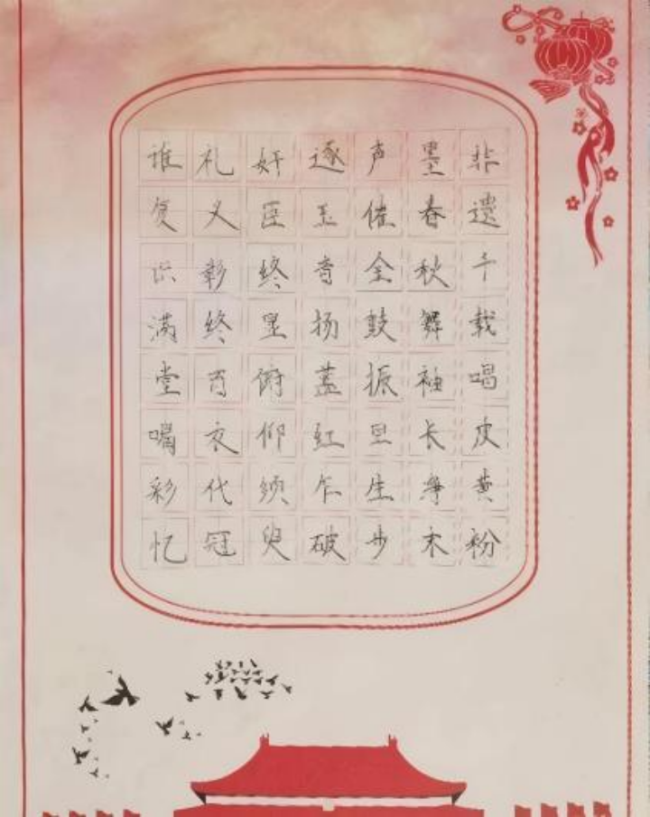 非遗千载唱皮黄粉
墨春秋舞袖长净末
声催全鼓振旦生步
逐玉音扬盖红乍破
奸臣终俯仰须臾
礼义彰终衣代冠
谁复识满堂喝彩忆